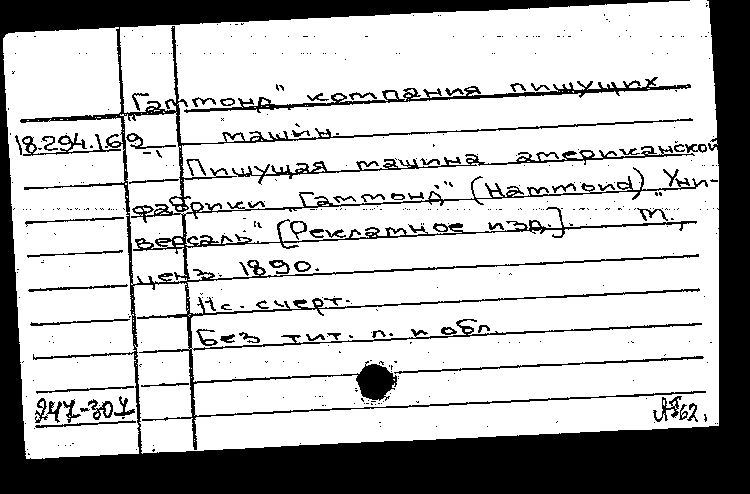 "Гаммонд", компания пишущих
18.294.169 машин.
Пишущая машина американской
фабрики "Гаммонд" (Hammond) "Уни-
версаль" [Рекламное изд.]. М.,
ценз. 1890.
11с. счерт.
Без тит. л. и обл.
247-307
62.